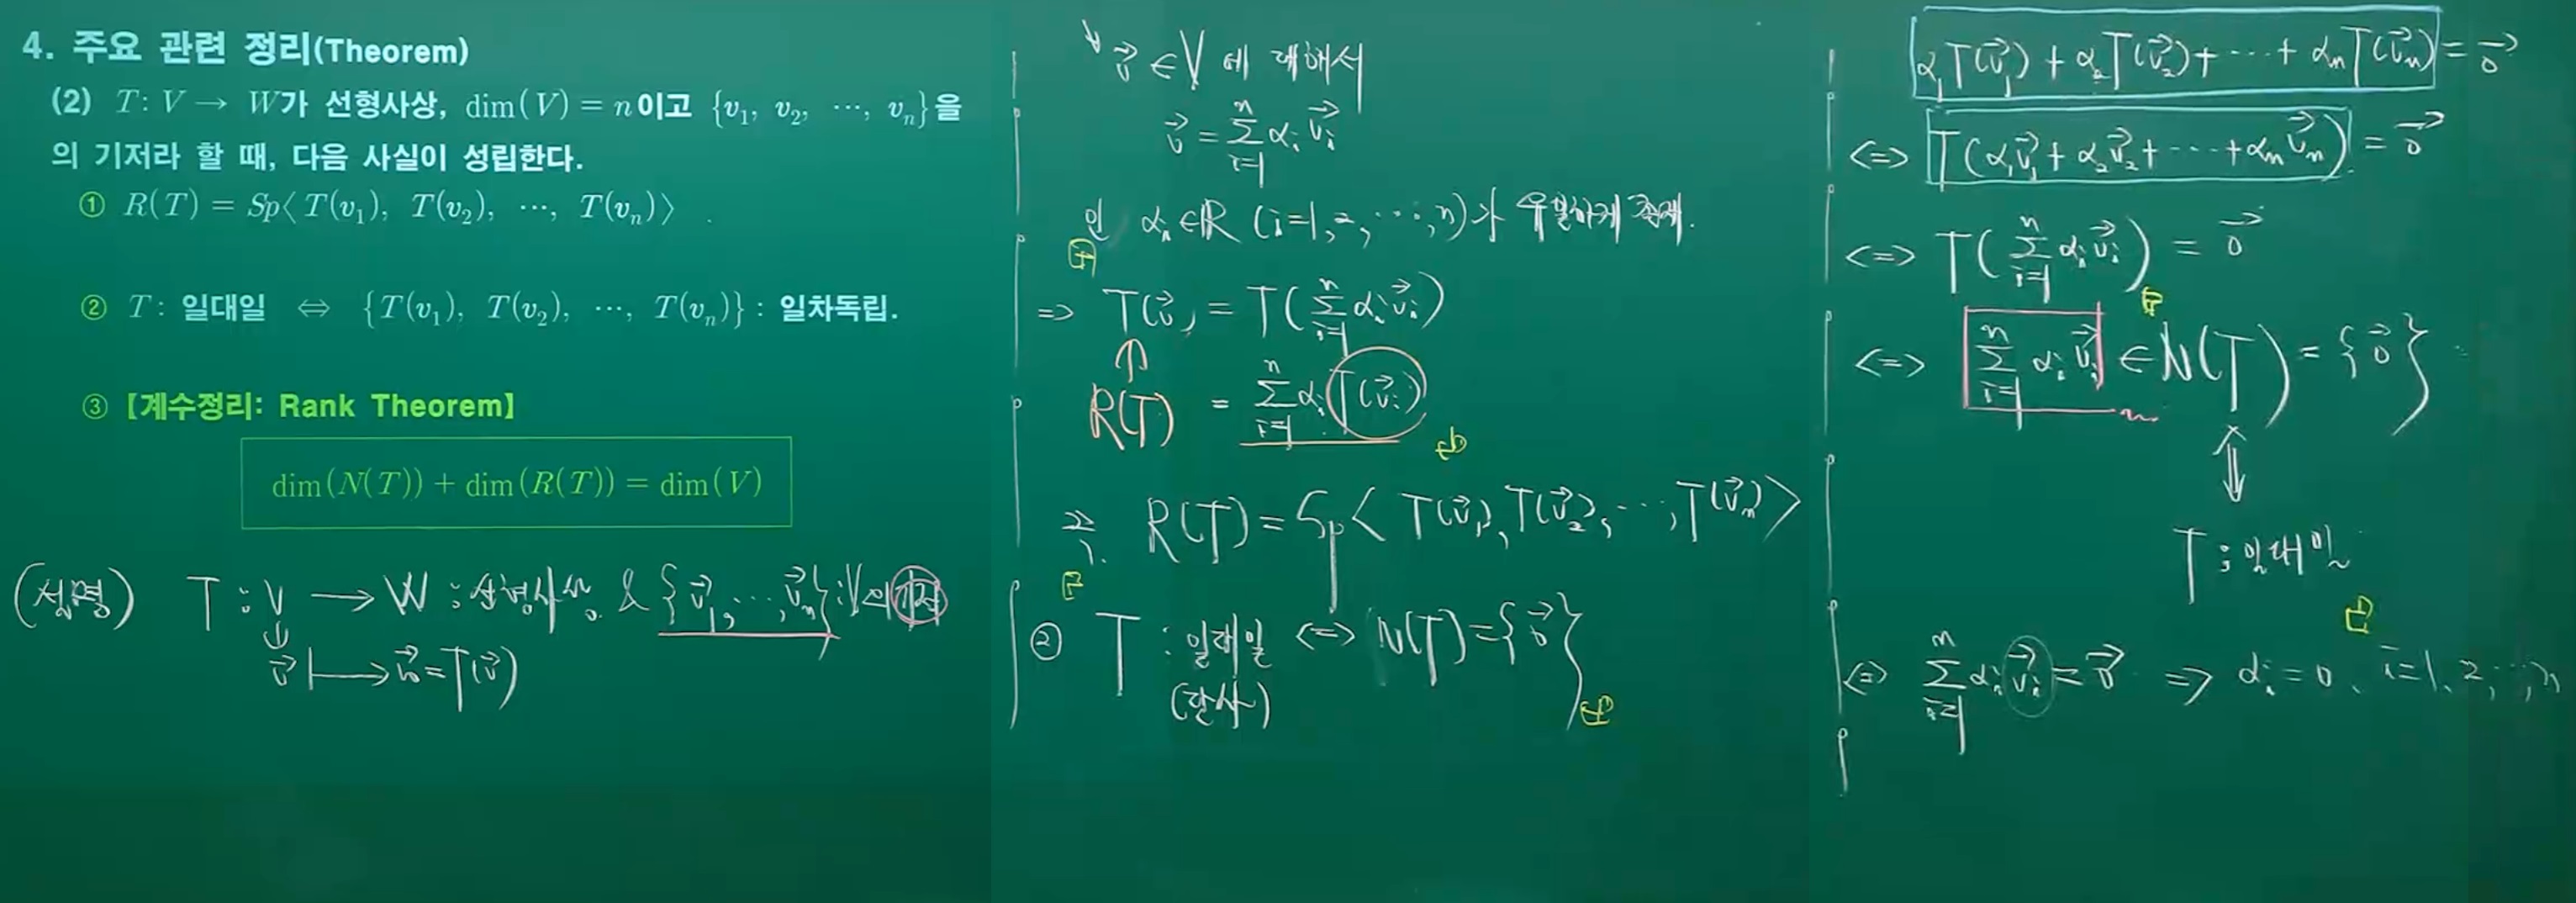 4. 주요 관련 정리(Theorem)
(2) T: V → W가 선형사상, dim(V) = n이고 {v₁, v₂, ⋯, vₙ}을
의 기저라 할 때, 다음 사실이 성립한다.
① R(T) = Sp⟨T(v₁), T(v₂), ⋯, T(vₙ)⟩
② T: 일대일 ⇔ {T(v₁), T(v₂), ⋯, T(vₙ)}: 일차독립.
③【계수정리: Rank Theorem】
dim(N(T)) + dim(R(T)) = dim(V)
(설명) T : V → W : 선형사상 & {v⃗₁, ⋯, v⃗ₙ} : V의 기저
v⃗ ↦ w⃗ = T(v⃗)
∀v⃗ ∈ V 에 대해서
v⃗ = Σᵢ₌₁ⁿ αᵢ v⃗ᵢ
인 αᵢ ∈ R (i=1, 2, ⋯, n)가 유일하게 존재.
⇒ T(v⃗) = T(Σᵢ₌₁ⁿ αᵢ v⃗ᵢ)
R(T) = Σᵢ₌₁ⁿ αᵢ T(v⃗ᵢ)
즉, R(T) = Sp⟨T(v⃗₁), T(v⃗₂), ⋯, T(v⃗ₙ)⟩
② T : 일대일 ⇔ N(T) = {0⃗}
(단사)
α₁T(v⃗₁) + α₂T(v⃗₂) + ⋯ + αₙT(v⃗ₙ) = 0⃗
⇔ T(α₁v⃗₁ + α₂v⃗₂ + ⋯ + αₙv⃗ₙ) = 0⃗
⇔ T(Σᵢ₌₁ⁿ αᵢ v⃗ᵢ) = 0⃗
⇔ Σᵢ₌₁ⁿ αᵢ v⃗ᵢ ∈ N(T) = {0⃗}
⇕
T : 일대일
⇔ Σᵢ₌₁ⁿ αᵢ v⃗ᵢ = 0⃗ ⇒ αᵢ = 0, i=1, 2, ⋯, n